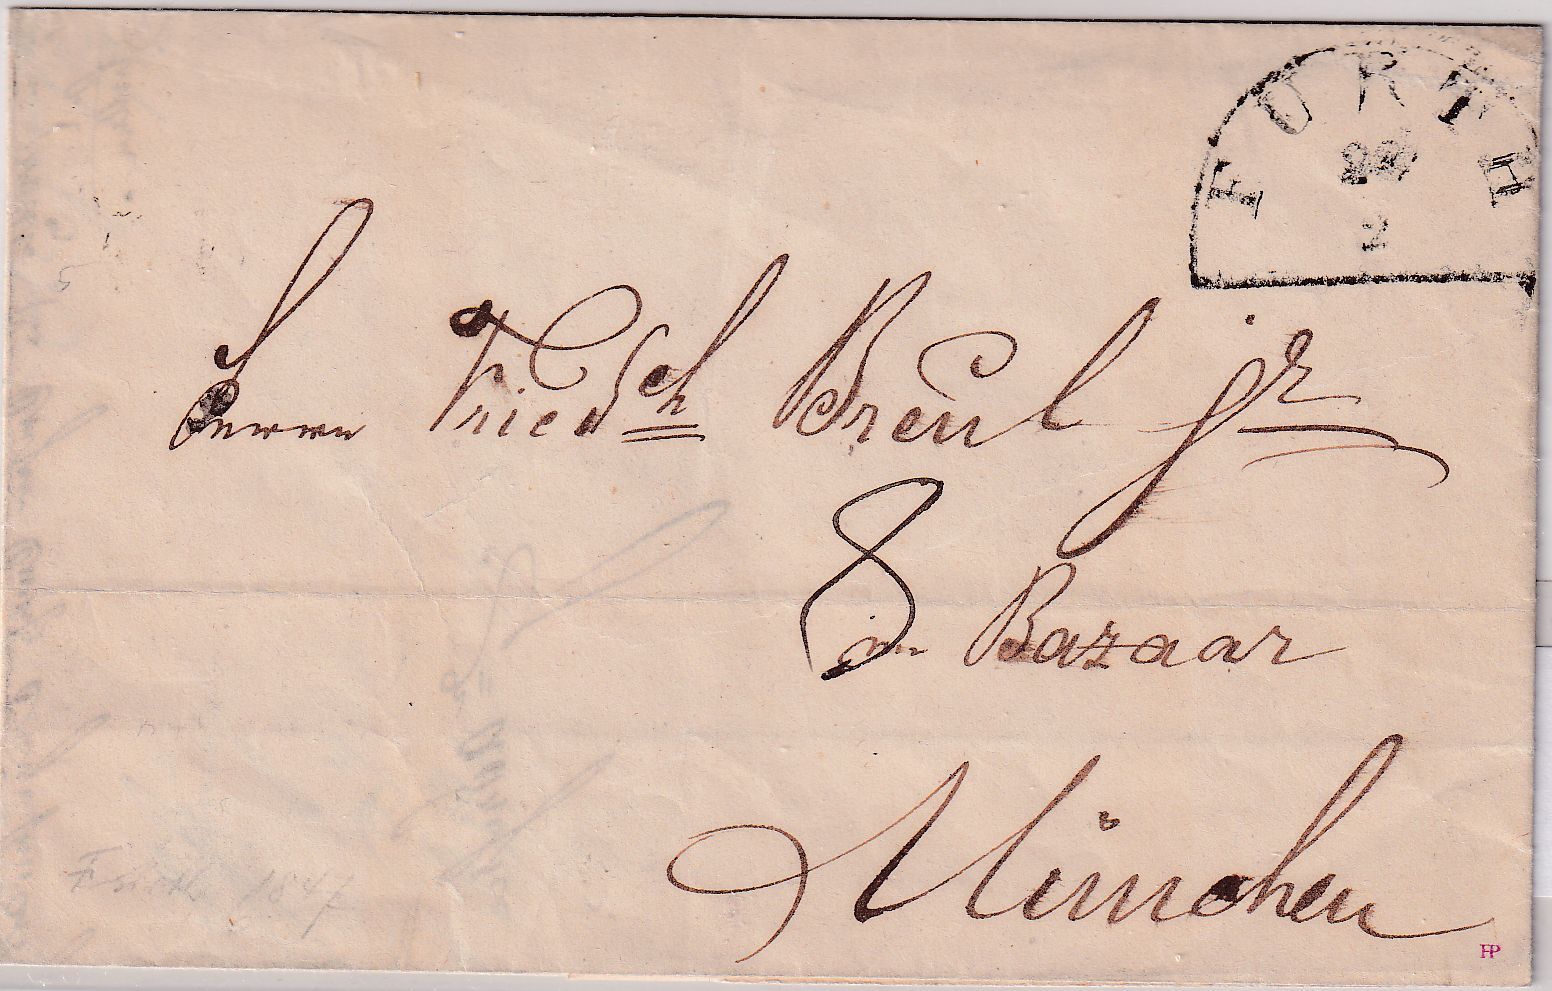 FURTH
2
Herrn Fried ch Breul jr
8
im Bazaar
München
Fürth 1847
HP